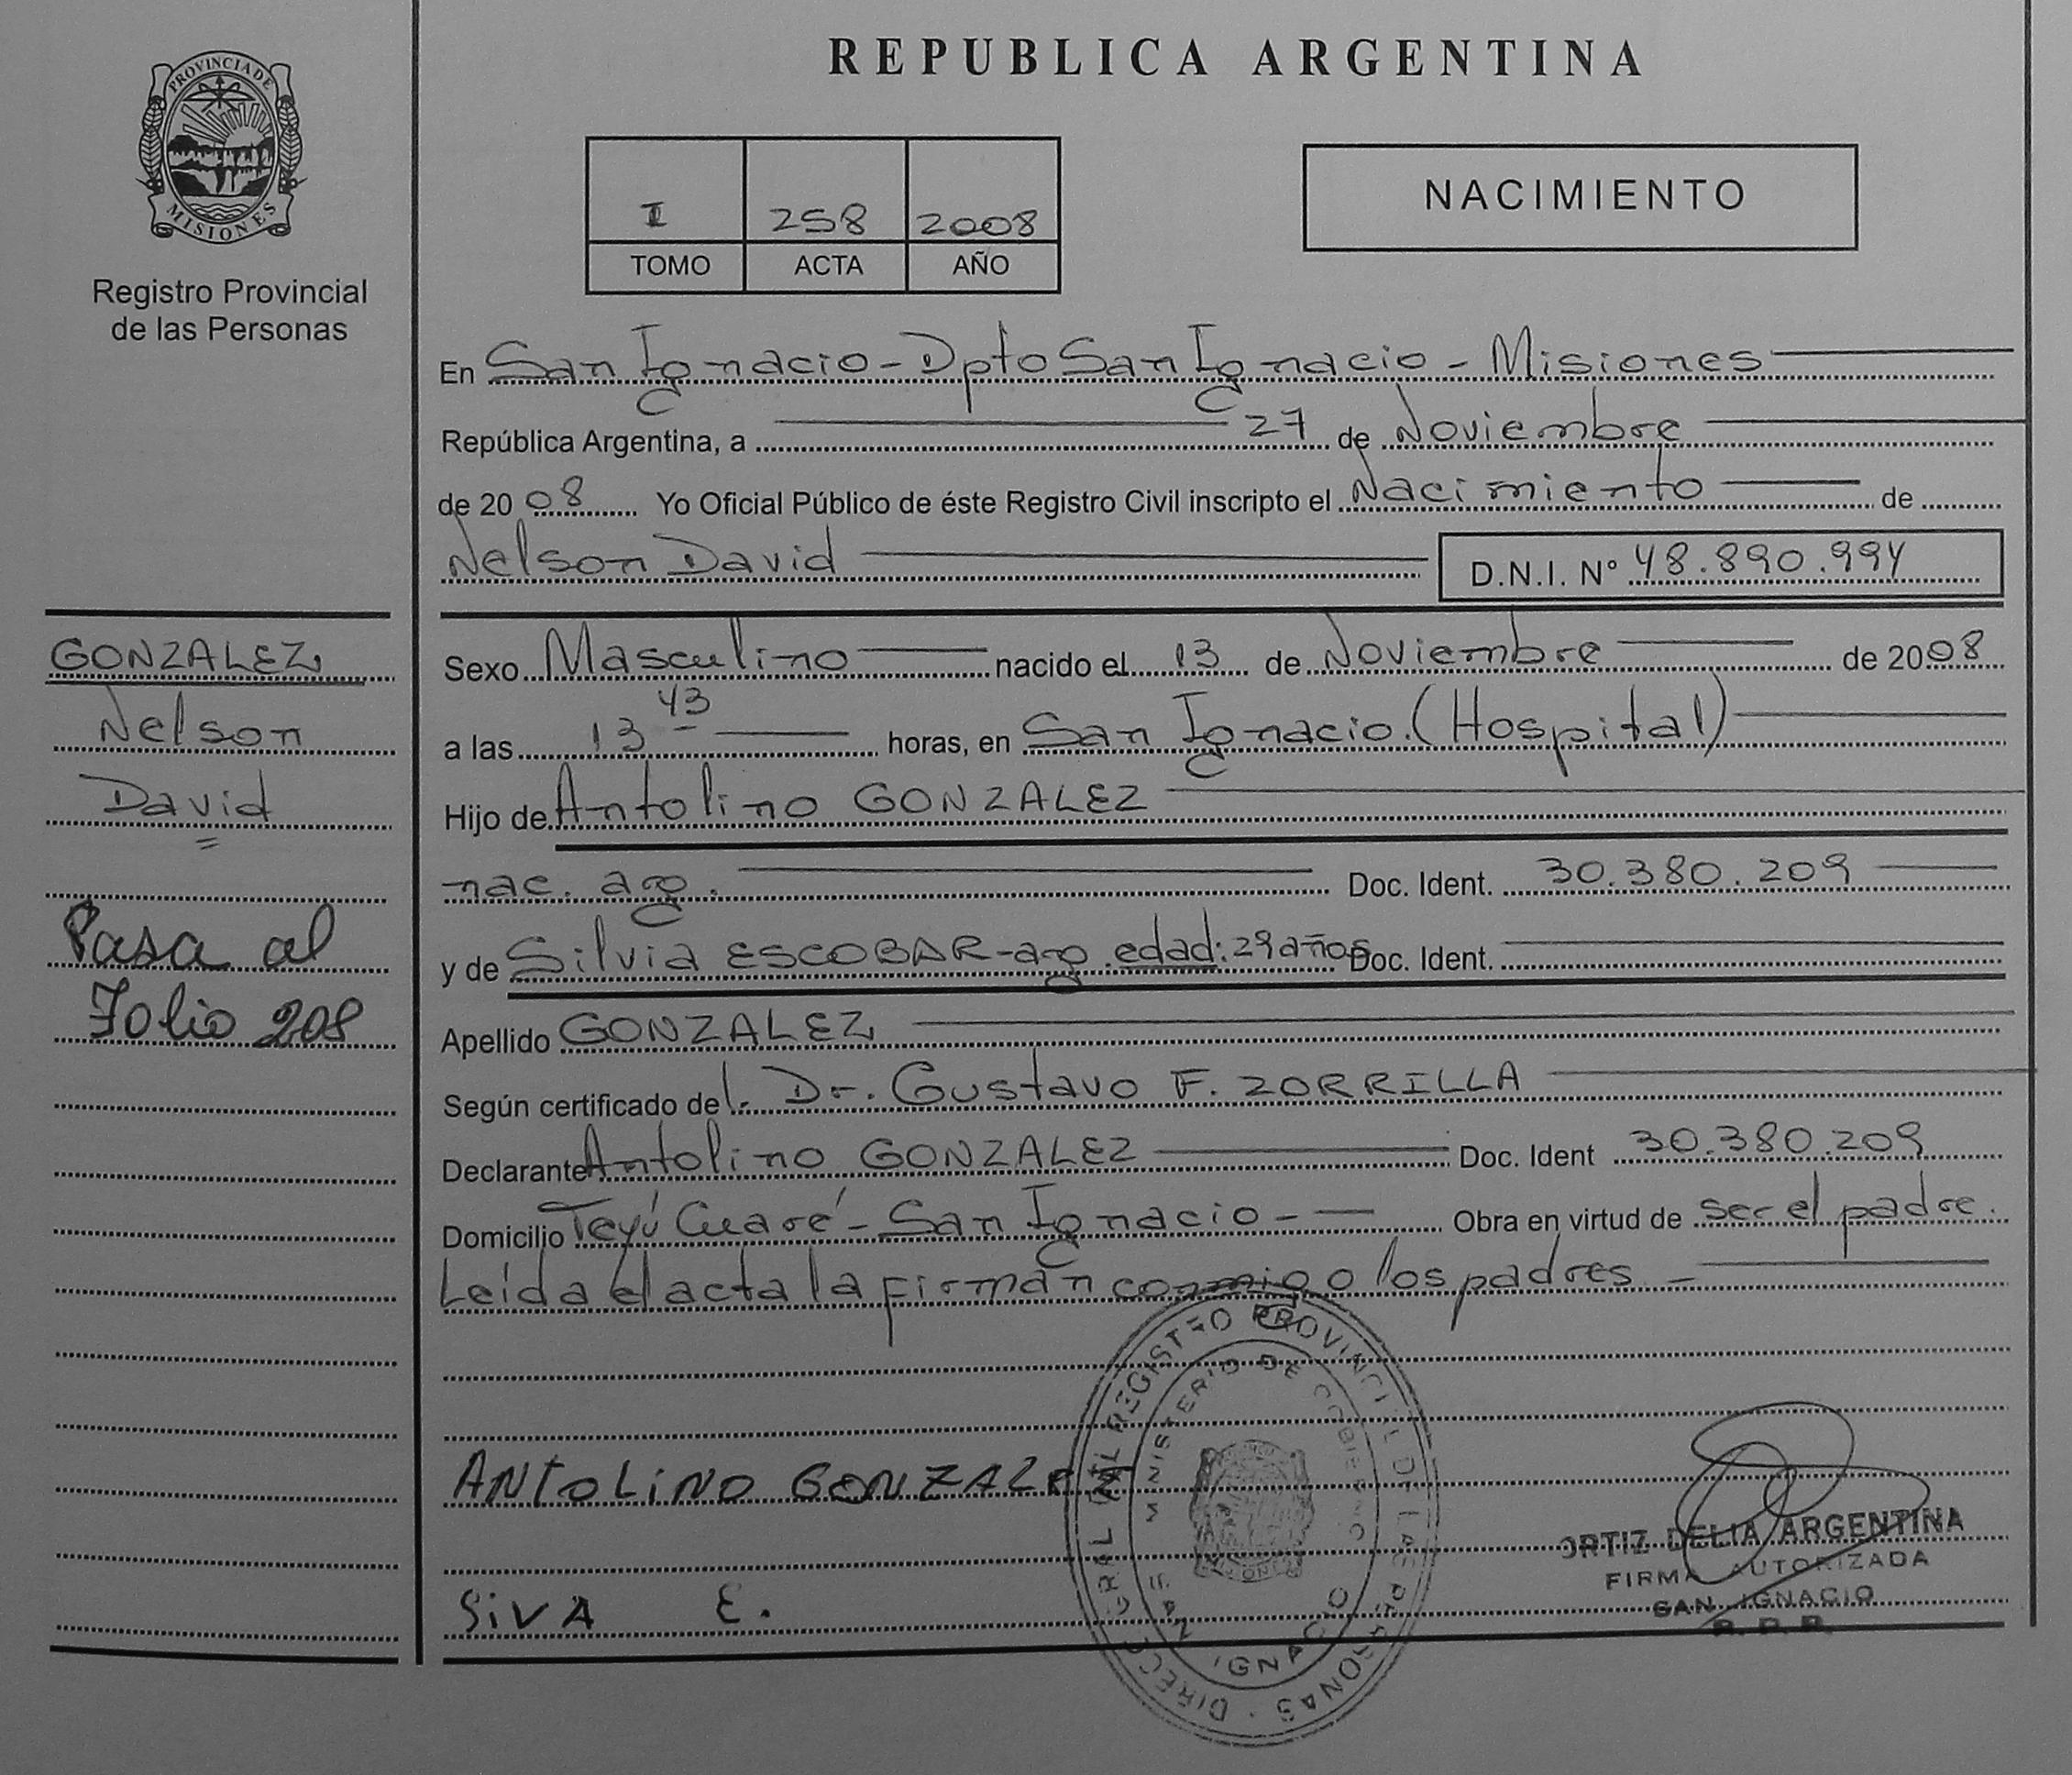 PROVINCIA DE
MISIONES
Registro Provincial
de las Personas
REPUBLICA ARGENTINA
I 258 2008
TOMO ACTA AÑO
NACIMIENTO
En San Ignacio - Dpto San Ignacio - Misiones
República Argentina, a 27 de Noviembre
de 20 08 Yo Oficial Público de éste Registro Civil inscripto el Nacimiento de
Nelson David D.N.I. Nº 48.890.994
GONZALEZ
Nelson
David
Pasa al
Folio 208
Sexo Masculino nacido el 13 de Noviembre de 2008
a las 13 43 horas, en San Ignacio. (Hospital)
Hijo de Antolino GONZALEZ
nac. arg. Doc. Ident. 30.380.209
y de Silvia ESCOBAR - arg. edad: 29 años Doc. Ident.
Apellido GONZALEZ
Según certificado del. Dr. Gustavo F. ZORRILLA
Declarante Antolino GONZALEZ Doc. Ident 30.380.209
Domicilio Teyú Cuaré - San Ignacio - Obra en virtud de ser el padre.
Leída el acta la firman conmigo los padres
ANTOLINO GONZALEZ
SiVA E.
DIRECC GRAL DEL REGISTRO PROVINCIAL DE LAS PERSONAS
MINISTERIO DE GOBIERNO
SAN IGNACIO
ORTIZ DELIA ARGENTINA
FIRMA AUTORIZADA
SAN IGNACIO
R. P. P.